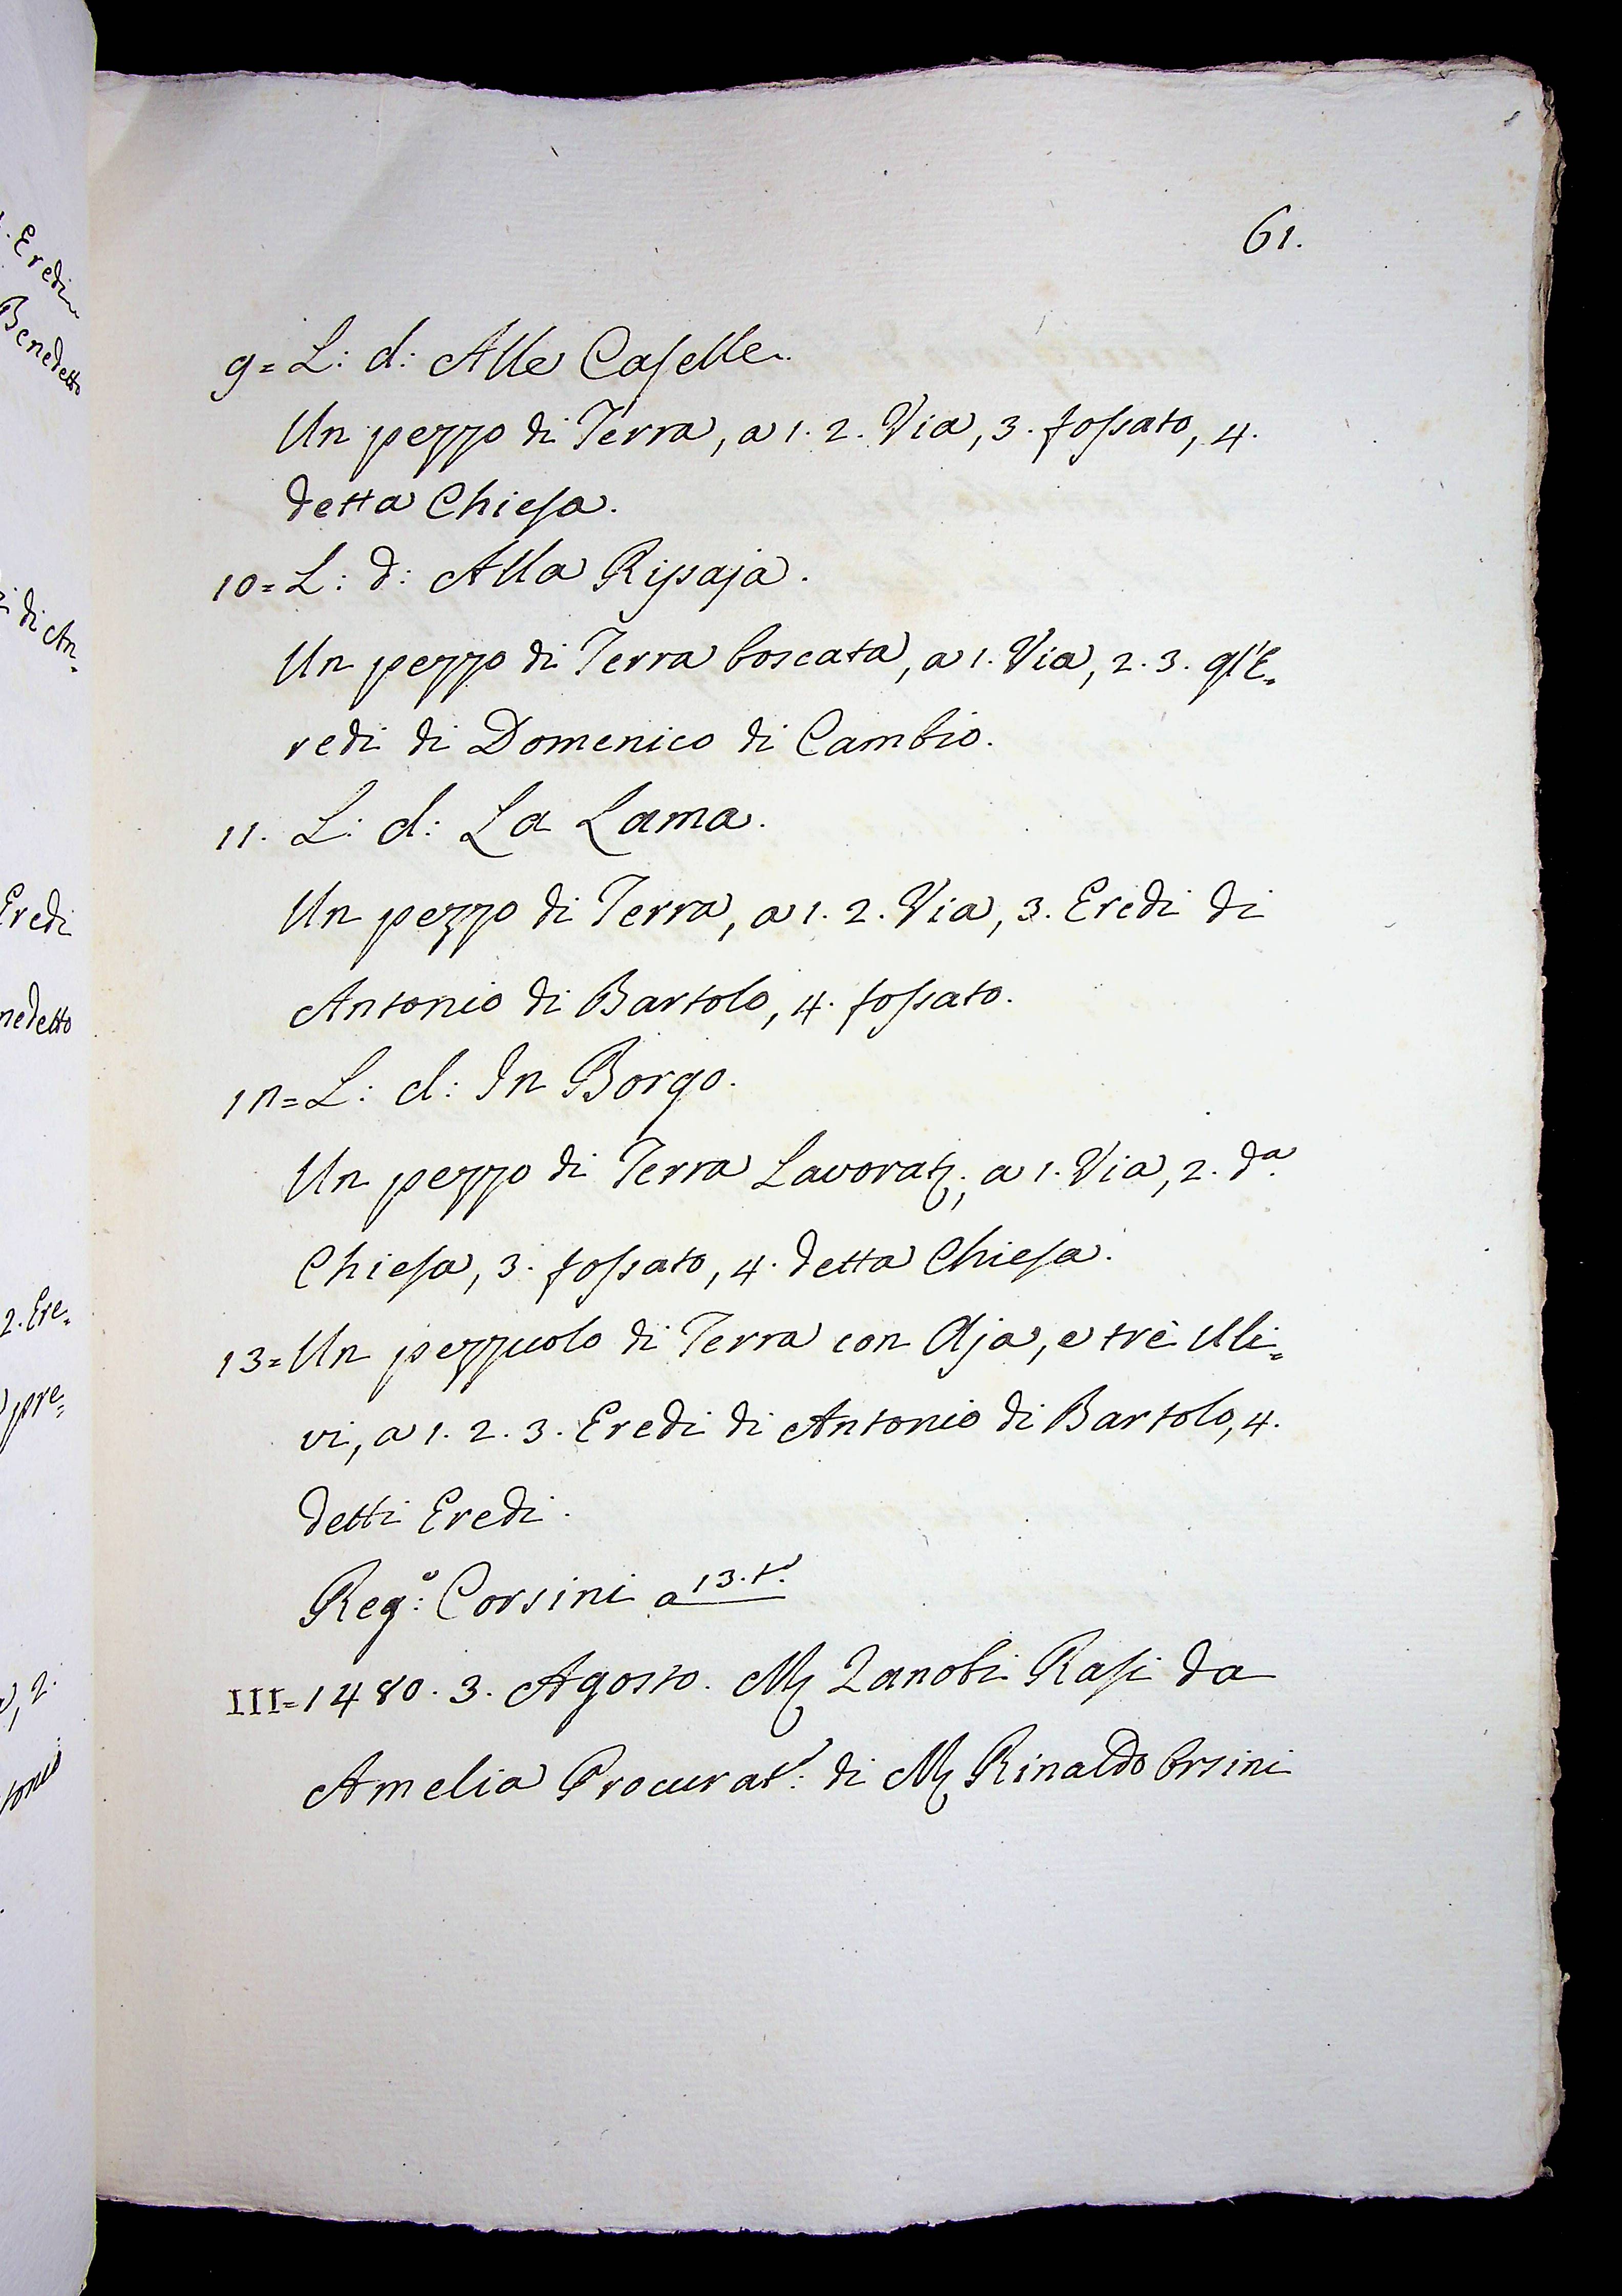 61.
9= L: d: Alle Caselle.
Un pezzo di Terra, a 1. 2. Via, 3. fossato, 4.
detta Chiesa.
10= L: d: Alla Ripaja.
Un pezzo di Terra boscata, a 1. Via, 2. 3. gl'E=
redi di Domenico di Cambio.
11. L: d: La Lama.
Un pezzo di Terra, a 1. 2. Via, 3. Eredi di
Antonio di Bartolo, 4. fossato.
12= L: d: In Borgo.
Un pezzo di Terra Lavorat; a 1. Via, 2. da
Chiesa, 3. fossato, 4. detta Chiesa.
13= Un pezzuolo di Terra con Aja, e trè Uli=
vi, a 1. 2. 3. Eredi di Antonio di Bartolo, 4.
detti Eredi.
Rego: Corsini a 13. t.
III= 1480. 3. Agosto. M Zanobi Rasi da
Amelia Procurat: di M Rinaldo Orsini
. Eredi
Benedetto
di An=
Eredi
nedetto
2. Ere=
pre=
2.
tonio